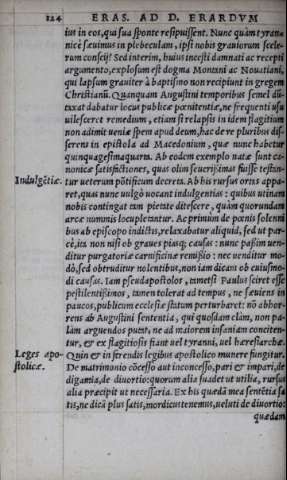 124 ERAS. AD D. ERARDVM
ius in eos, qui sua sponte resipuissent. Nunc quàm tyran-
nicè sæuimus in plebeculam, ipsi nobis grauiorum scele-
rum conscij? Sed interim, huius incesti damnati ac recepti
argumento, explosum est dogma Montani ac Nouatiani,
qui lapsum grauiter à baptismo non recipiunt in gregem
Christianū. Quanquam Augustini temporibus semel dū-
taxat dabatur locus publicæ pœnitentiæ, ne frequenti usu
uilesceret remedium, etiam si relapsis in idem flagitium
non adimit ueniæ spem apud deum, hac de re pluribus dis-
serens in epistola ad Macedonium, quæ nunc habetur
quinquagesimaquarta. Ab eodem exemplo natæ sunt ca-
nonicæ satisfactiones, quas olim seuerissimas fuisse testan-
Indulgētiæ. tur ueterum pōtificum decreta. Ab his rursus orisa appa-
ret, quas nunc uulgò uocant indulgentias: quibus utinam
nobis contingat tam pietate ditescere, quàm quorundam
arcæ nummis locupletantur. Ac primùm de pœnis solenni
bus ab episcopo indictis, relaxabatur aliquid, sed ut par-
cè, ita non nisi ob graues piasq; causas: nunc passim uen-
ditur purgatoriæ carnificinæ remissio: nec uenditur mo-
dò, sed obtruditur nolentibus, non iam dicam ob cuiusmo-
di causas. Iam pseudapostolos, tametsi Paulus sciret esse
pestilentissimos, tamen tolerat ad tempus, ne sæuiens in
paucos, publicum ecclesiæ statum perturbaret: nō abhor-
rens ab Augustini sententia, qui quosdam clàm, non pa-
làm arguendos putet, ne ad maiorem insaniam conciten-
tur, & ex flagitiosis fiant uel tyranni, uel hæresiarchæ.
Leges apo- Quin & in ferendis legibus apostolico munere fungitur.
stolicæ. De matrimonio cōcesso aut inconcesso, pari & impari, de
digamia, de diuortio: quorum alia suadet ut utilia, rursus
alia præcipit ut necessaria. Ex his quædā mea sentētia sa
tis, ne dicā plus satis, mordicus tenemus, ueluti de diuortio:
quædam